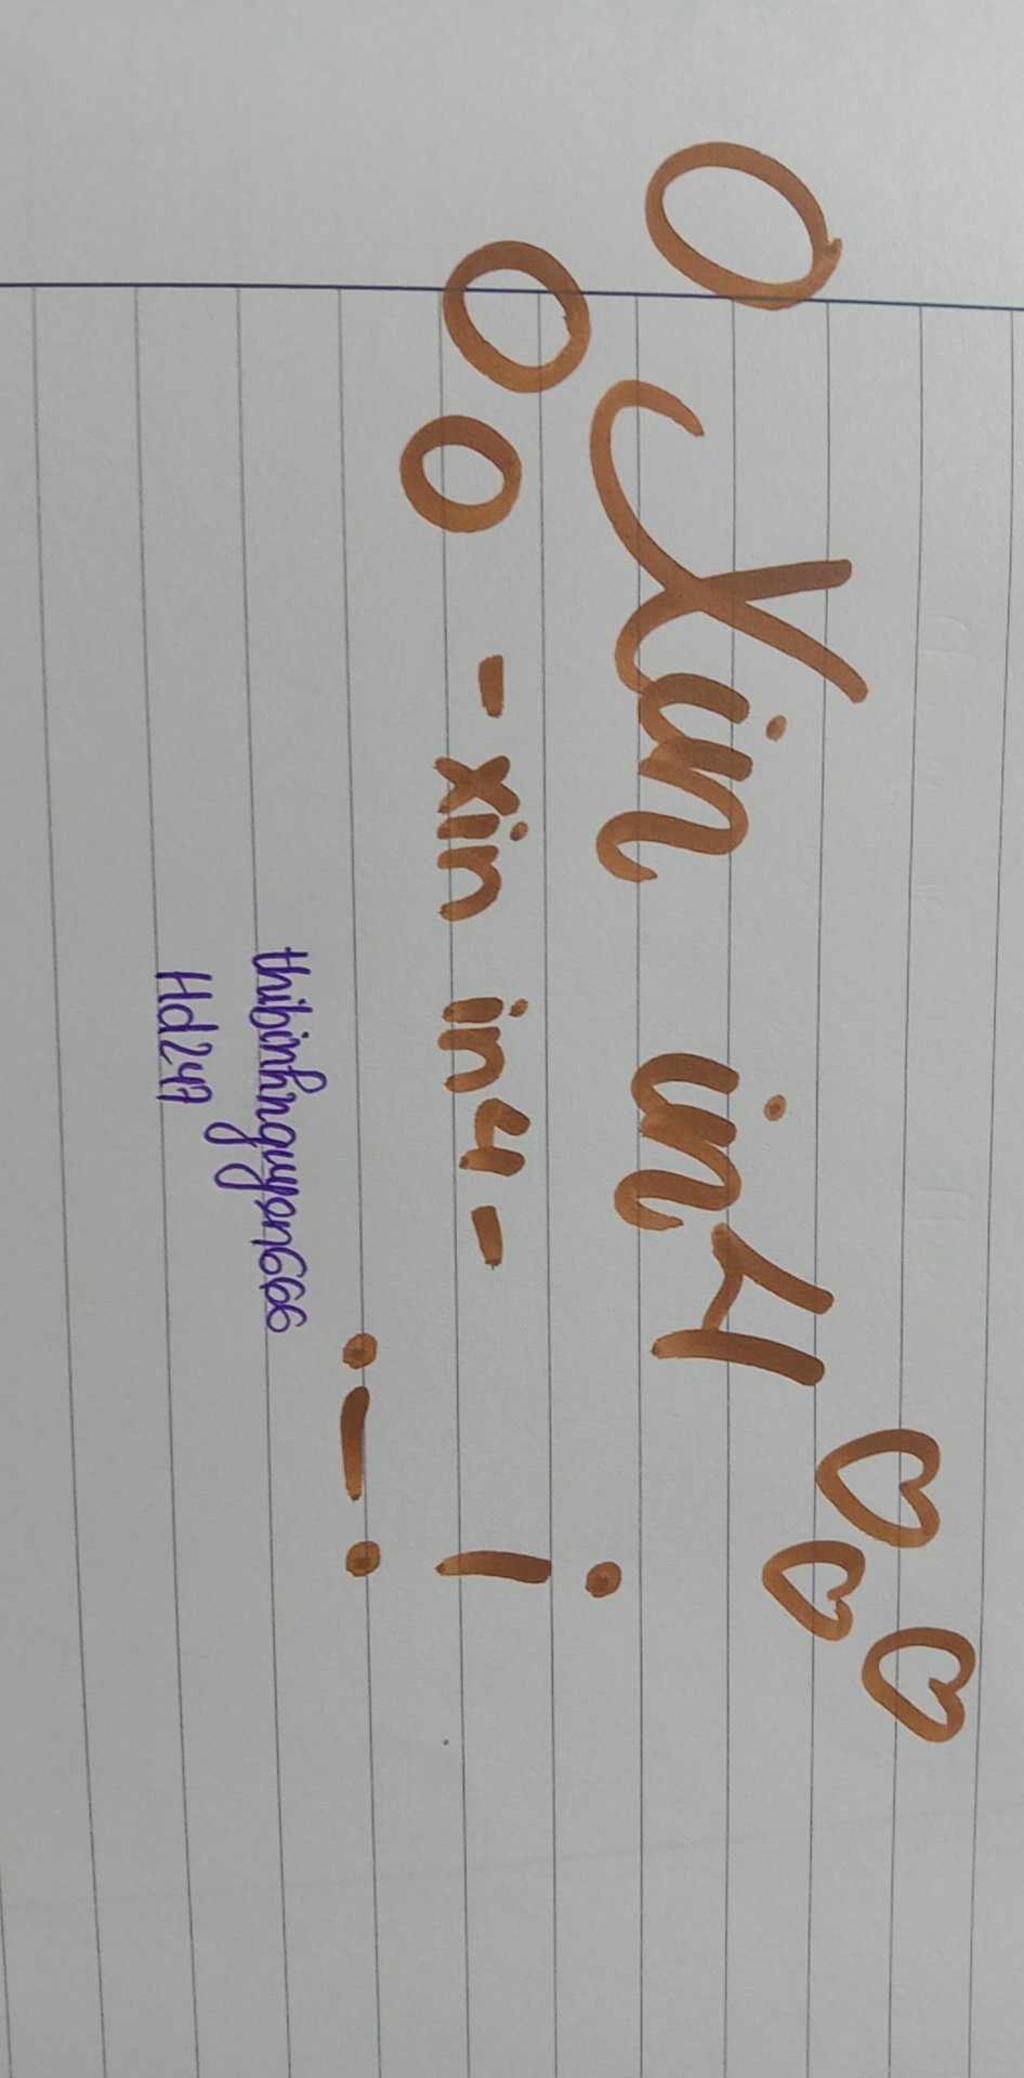 Xin in4
- xin in4 -
thibinhnguyen666
Hd247